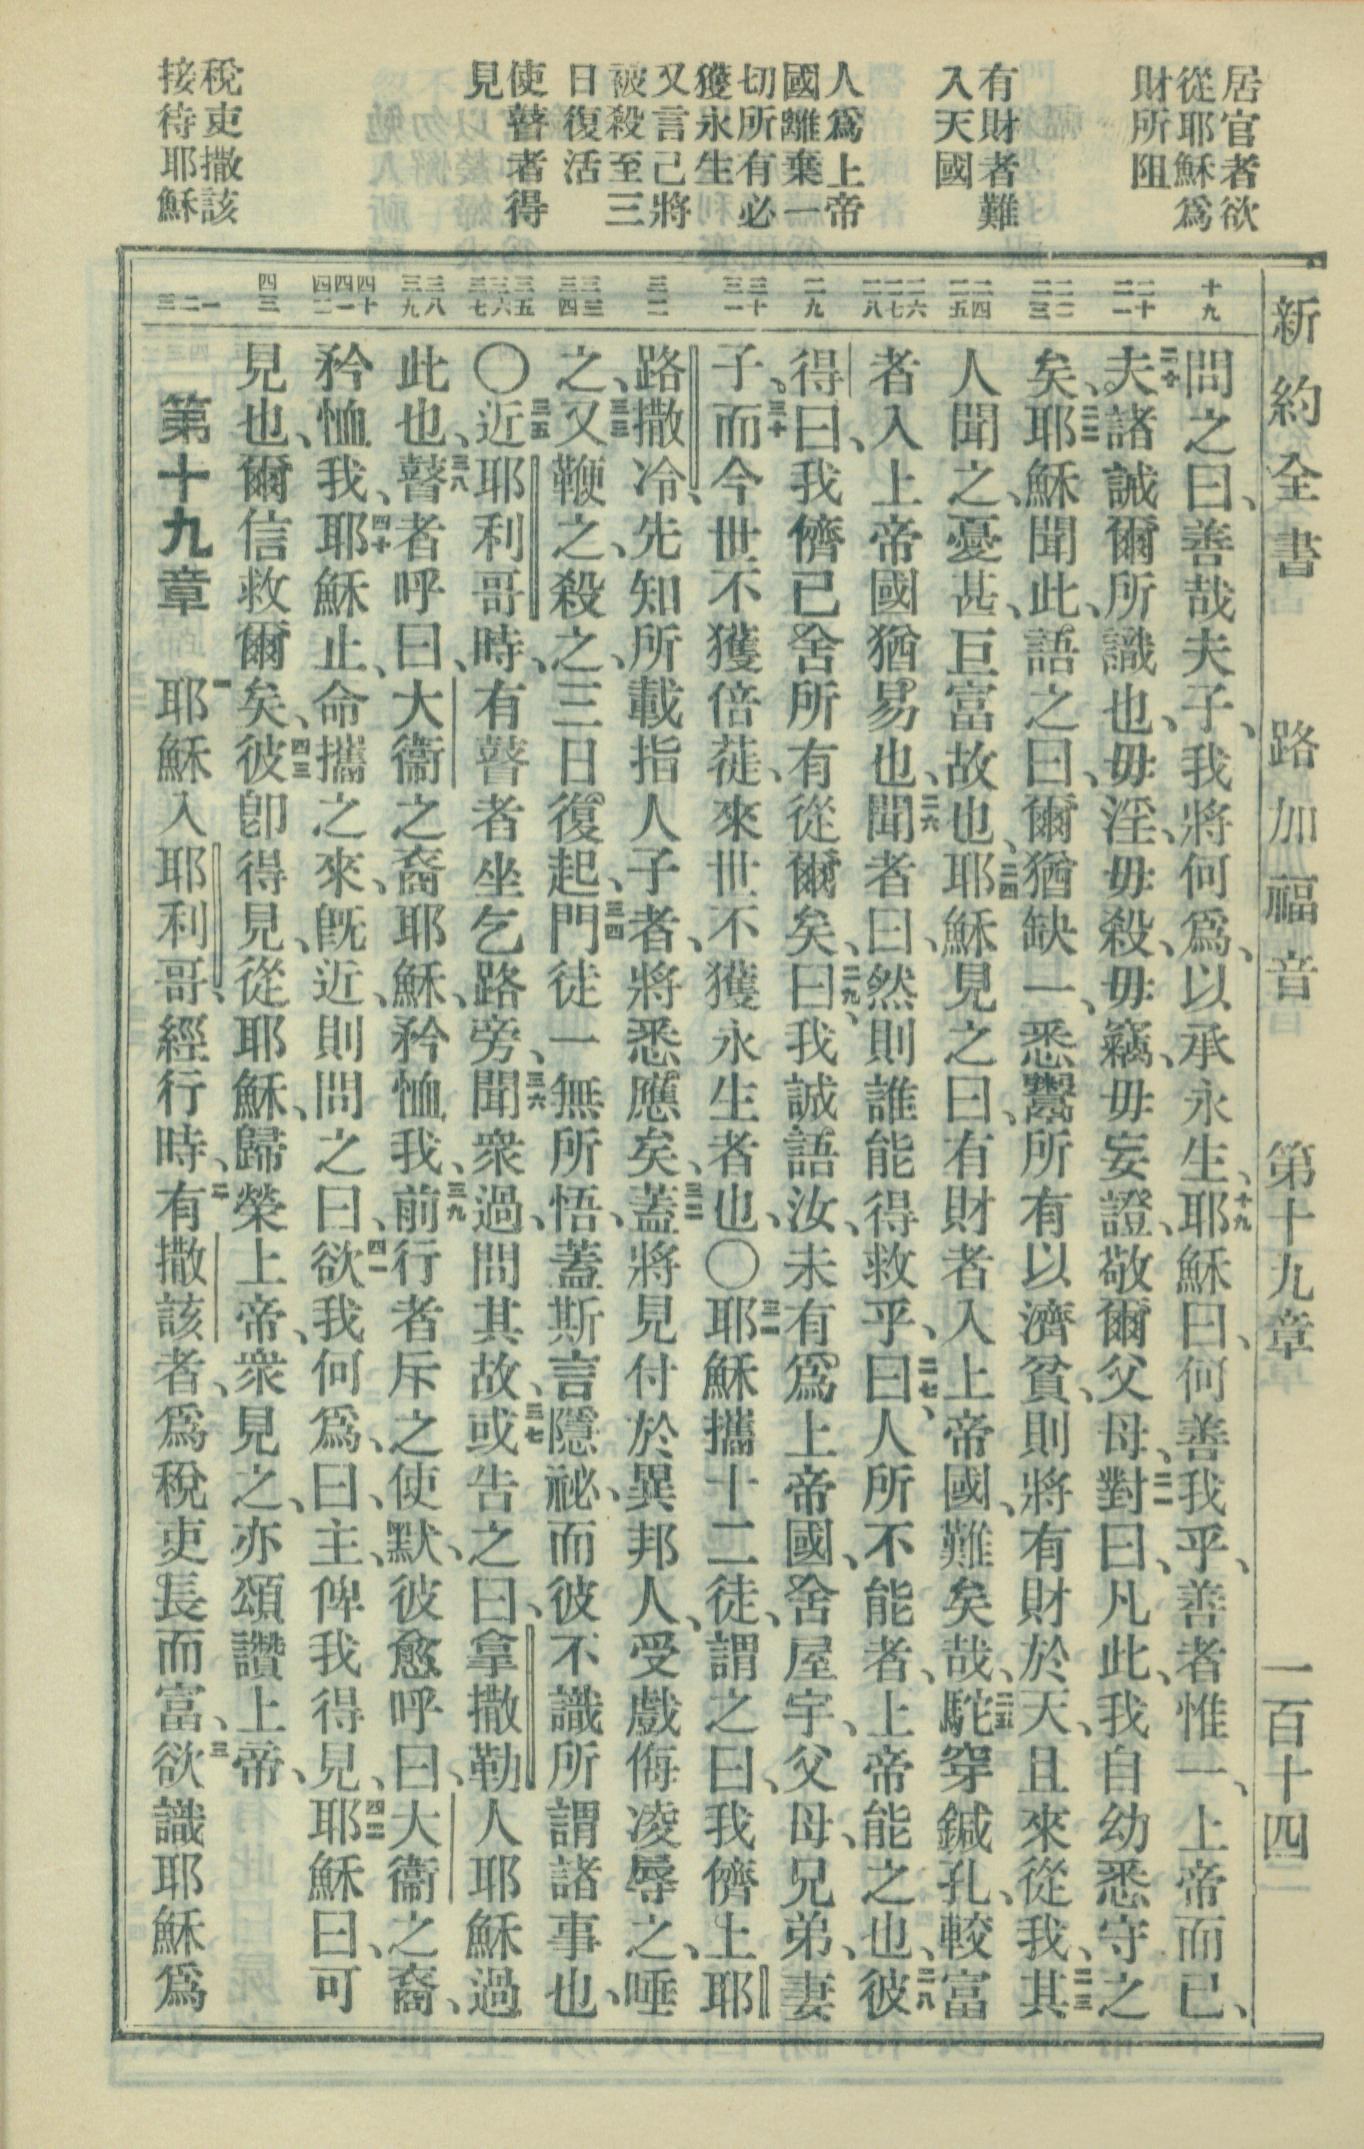 新約全書 路加福音 第十九章 一百十四
居官者欲
從耶穌爲
財所阻
有財者難
入天國
人爲上帝
國離棄一
切所有必
獲永生
又言己將
被殺至三
日復活
使瞽者得
見
稅吏撒該
接待耶穌
十九
二十 二一
二二 二三
二四 二五
二六 二七 二八
二九
三十 三一
三二
三三 三四
三五 三六 三七
三八 三九
四十 四一 四二
四三
一 二 三
問之曰、善哉夫子、我將何爲、以承永生、十九耶穌曰、何善我乎、善者惟一、上帝而已、
二十夫諸誡爾所識也、毋淫、毋殺、毋竊、毋妄證、敬爾父母、二一對曰、凡此、我自幼悉守之
矣、二二耶穌聞此、語之曰、爾猶缺一、悉鬻所有以濟貧、則將有財於天、且來從我、二三其
人聞之、憂甚、巨富故也、二四耶穌見之曰、有財者入上帝國、難矣哉、二五駝穿鍼孔、較富
者入上帝國猶易也、二六聞者曰、然則誰能得救乎、二七曰、人所不能者、上帝能之也、二八彼
得曰、我儕已舍所有從爾矣、二九曰、我誠語汝、未有爲上帝國、舍屋宇、父母、兄弟、妻
子、三十而今世不獲倍蓰、來世不獲永生者也、〇三一耶穌攜十二徒、謂之曰、我儕上耶
路撒冷、先知所載指人子者、將悉應矣、三二蓋將見付於異邦人、受戲侮凌辱之、唾
之、三三又鞭之、殺之、三日復起、三四門徒一無所悟、蓋斯言隱祕、而彼不識所謂諸事也、
〇三五近耶利哥時、有瞽者坐乞路旁、三六聞衆過、問其故、三七或告之曰、拿撒勒人耶穌過
此也、三八瞽者呼曰、大衞之裔耶穌、矜恤我、三九前行者斥之使默、彼愈呼曰、大衞之裔、
矜恤我、四十耶穌止、命攜之來、旣近、則問之曰、四一欲我何爲、曰、主、俾我得見、四二耶穌曰、可
見也、爾信救爾矣、四三彼卽得見、從耶穌、歸榮上帝、衆見之、亦頌讚上帝、
第十九章 一耶穌入耶利哥、經行時、二有撒該者、爲稅吏長而富、三欲識耶穌爲